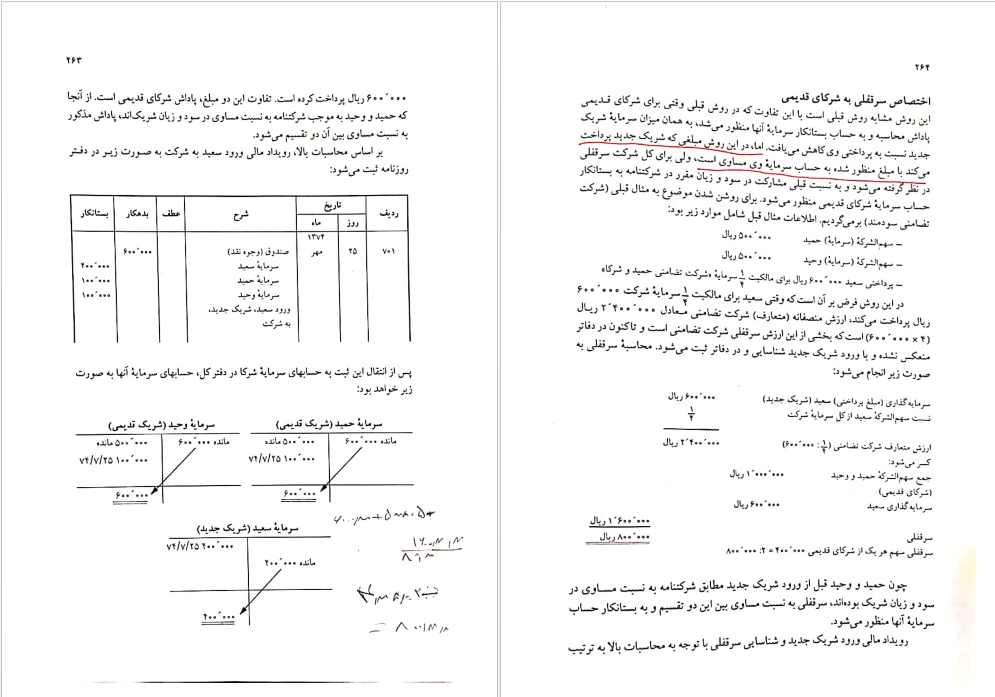 ۲۶۳
۶۰۰٬۰۰۰ ریال پرداخت کرده است. تفاوت این دو مبلغ، پاداش شرکای قدیمی است. از آنجا
که حمید و وحید به موجب شرکتنامه به نسبت مساوی در سود و زیان شریک‌اند، پاداش مذکور
به نسبت مساوی بین آن دو تقسیم می‌شود.
بر اساس محاسبات بالا، رویداد مالی ورود سعید به شرکت به صورت زیر در دفتر
روزنامه ثبت می‌شود:
ردیف تاریخ شرح عطف بدهکار بستانکار
ماه روز
۱۳۷۴
۷۰۱ مهر ۲۵ صندوق (وجوه نقد) ۶۰۰٬۰۰۰
سرمایهٔ سعید ۴۰۰٬۰۰۰
سرمایهٔ حمید ۱۰۰٬۰۰۰
سرمایهٔ وحید ۱۰۰٬۰۰۰
ورود سعید، شریک جدید،
به شرکت
پس از انتقال این ثبت به حسابهای سرمایهٔ شرکا در دفتر کل، حسابهای سرمایهٔ آنها به صورت
زیر خواهد بود:
سرمایهٔ حمید (شریک قدیمی)
مانده ۶۰۰٬۰۰۰ ۵۰۰٬۰۰۰ مانده
۱۰۰٬۰۰۰ ۷۴/۷/۲۵
۶۰۰٬۰۰۰
سرمایهٔ وحید (شریک قدیمی)
مانده ۶۰۰٬۰۰۰ ۵۰۰٬۰۰۰ مانده
۱۰۰٬۰۰۰ ۷۴/۷/۲۵
۶۰۰٬۰۰۰
سرمایهٔ سعید (شریک جدید)
۴۰۰٬۰۰۰ ۷۴/۷/۲۵
مانده ۴۰۰٬۰۰۰
۴۰۰٬۰۰۰
۲۶۴
اختصاص سرقفلی به شرکای قدیمی
این روش مشابه روش قبلی است با این تفاوت که در روش قبلی وقتی برای شرکای قدیمی
پاداش محاسبه و به حساب بستانکار سرمایهٔ آنها منظور می‌شد، به همان میزان سرمایهٔ شریک
جدید نسبت به پرداختی وی کاهش می‌یافت. اما، در این روش مبلغی که شریک جدید پرداخت
می‌کند با مبلغ منظور شده به حساب سرمایهٔ وی مساوی است، ولی برای کل شرکت سرقفلی
در نظر گرفته می‌شود و به نسبت قبلی مشارکت در سود و زیان مقرر در شرکتنامه به بستانکار
حساب سرمایهٔ شرکای قدیمی منظور می‌شود. برای روشن شدن موضوع به مثال قبلی (شرکت
تضامنی سودمند) برمی‌گردیم. اطلاعات مثال قبل شامل موارد زیر بود:
– سهم‌الشرکهٔ (سرمایهٔ) حمید ۵۰۰٬۰۰۰ ریال
– سهم‌الشرکهٔ (سرمایهٔ) وحید ۵۰۰٬۰۰۰ ریال
– پرداختی سعید ۶۰۰٬۰۰۰ ریال برای مالکیت ۱/۴ سرمایهٔ «شرکت تضامنی حمید و شرکا»
در این روش فرض بر آن است که وقتی سعید برای مالکیت ۱/۴ سرمایهٔ شرکت ۶۰۰٬۰۰۰
ریال پرداخت می‌کند، ارزش منصفانه (متعارف) شرکت تضامنی معادل ۲٬۴۰۰٬۰۰۰ ریال
(۴ × ۶۰۰٬۰۰۰) است که بخشی از این ارزش سرقفلی شرکت تضامنی است و تاکنون در دفاتر
منعکس نشده و با ورود شریک جدید شناسایی و در دفاتر ثبت می‌شود. محاسبهٔ سرقفلی به
صورت زیر انجام می‌شود:
سرمایه‌گذاری (مبلغ پرداختی) سعید (شریک جدید) ۶۰۰٬۰۰۰ ریال
نسبت سهم‌الشرکهٔ سعید از کل سرمایهٔ شرکت ۱/۴
ارزش متعارف شرکت تضامنی (۱/۴ : ۶۰۰٬۰۰۰) ۲٬۴۰۰٬۰۰۰ ریال
کسر می‌شود:
جمع سهم‌الشرکهٔ حمید و وحید ۱٬۰۰۰٬۰۰۰ ریال
(شرکای قدیمی)
سرمایه‌گذاری سعید ۶۰۰٬۰۰۰ ریال
۱٬۶۰۰٬۰۰۰ ریال
سرقفلی ۸۰۰٬۰۰۰ ریال
سرقفلی سهم هر یک از شرکای قدیمی ۴۰۰٬۰۰۰ = ۲ : ۸۰۰٬۰۰۰
چون حمید و وحید قبل از ورود شریک جدید مطابق شرکتنامه به نسبت مساوی در
سود و زیان شریک بوده‌اند، سرقفلی به نسبت مساوی بین این دو تقسیم و به بستانکار حساب
سرمایهٔ آنها منظور می‌شود.
رویداد مالی ورود شریک جدید و شناسایی سرقفلی با توجه به محاسبات بالا به ترتیب